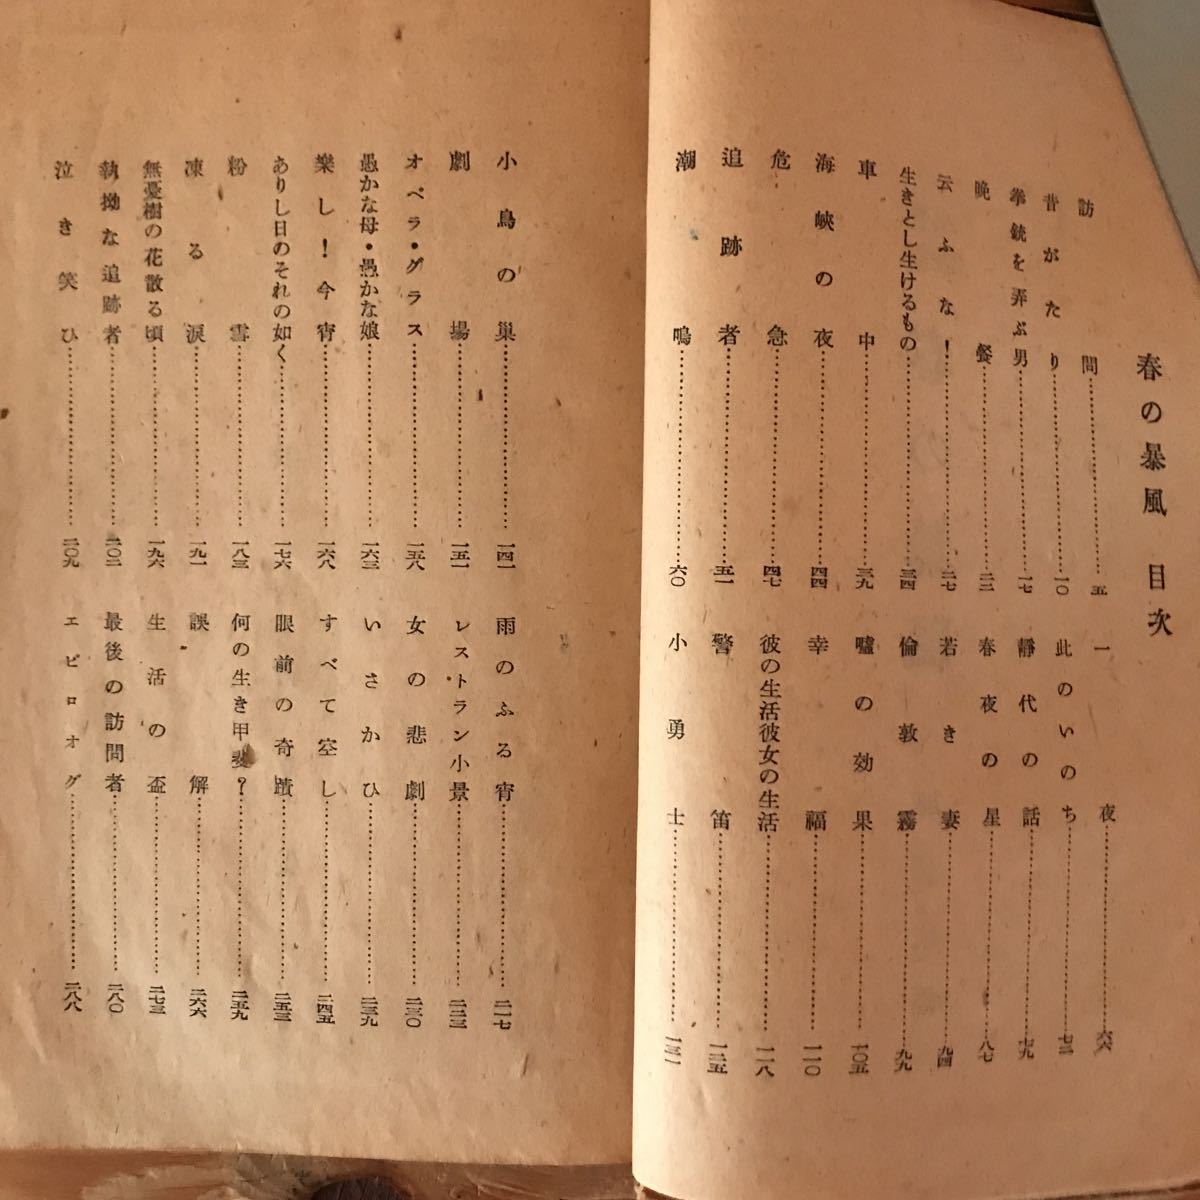 春の暴風 目次
訪問……五
昔がたり……一〇
拳銃を弄ぶ男……一七
晩餐……二二
云ふな!……二七
生きとし生けるもの……三四
車中……三九
海峡の夜……四四
危急……四七
追跡者……五一
潮鳴……六〇
一夜……六六
此のいのち……七二
靜代の話……七九
春夜の星……八七
若き妻……九四
倫敦霧……九九
嘘の効果……一〇五
幸福……一一〇
彼の生活彼女の生活……一一八
警笛……一二五
小勇士……一三一
小鳥の巣……一四一
劇場……一五一
オペラ・グラス……一五八
愚かな母・愚かな娘……一六三
樂し!今宵……一六八
ありし日のそれの如く……一七六
粉雪……一八三
凍る涙……一九一
無憂樹の花散る頃……一九六
執拗な追跡者……二〇二
泣き笑ひ……二〇九
雨のふる宵……二一七
レストラン小景……二二三
女の悲劇……二三〇
いさかひ……二三九
すべて空し……二四五
眼前の奇蹟……二五三
何の生き甲斐?……二五九
誤解……二六六
生活の盃……二七三
最後の訪問者……二八〇
エピロオグ……二八八